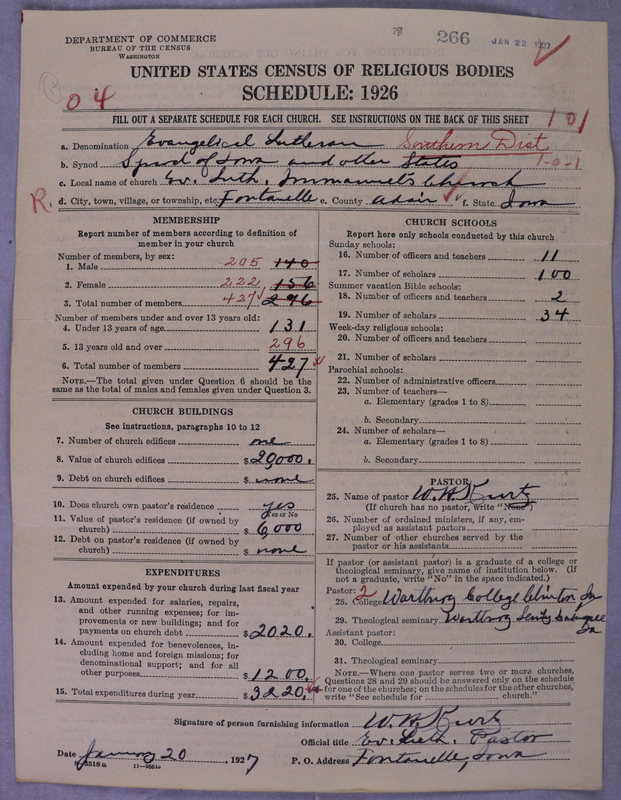 DEPARTMENT OF COMMERCE
BUREAU OF THE CENSUS
WASHINGTON
266
JAN 22 1927
UNITED STATES CENSUS OF RELIGIOUS BODIES
SCHEDULE: 1926
04
FILL OUT A SEPARATE SCHEDULE FOR EACH CHURCH. SEE INSTRUCTIONS ON THE BACK OF THIS SHEET
101
a. Denomination Evangelical Lutheran Southern Dist
b. Synod Synod of Iowa and other States 1-0-1
c. Local name of church Ev. Luth. Immanuels Church
R.
d. City, town, village, or township, etc. Fontanelle e. County Adair f. State Iowa
MEMBERSHIP
Report number of members according to definition of
member in your church
Number of members, by sex:
1. Male 205 140
2. Female 222 156
3. Total number of members 427 296
Number of members under and over 13 years old:
4. Under 13 years of age 131
5. 13 years old and over 296
6. Total number of members 427
NOTE.—The total given under Question 6 should be the
same as the total of males and females given under Question 3.
CHURCH BUILDINGS
See instructions, paragraphs 10 to 12
7. Number of church edifices one
8. Value of church edifices $20,000.
9. Debt on church edifices $ none
10. Does church own pastor's residence yes
(Yes or No)
11. Value of pastor's residence (if owned by
church) $ 6,000
12. Debt on pastor's residence (if owned by
church) $ none
EXPENDITURES
Amount expended by your church during last fiscal year
13. Amount expended for salaries, repairs,
and other running expenses; for im-
provements or new buildings; and for
payments on church debt $ 2020.
14. Amount expended for benevolences, in-
cluding home and foreign missions; for
denominational support; and for all
other purposes $ 1200.
15. Total expenditures during year $ 3220.
CHURCH SCHOOLS
Report here only schools conducted by this church
Sunday schools:
16. Number of officers and teachers 11
17. Number of scholars 100
Summer vacation Bible schools:
18. Number of officers and teachers 2
19. Number of scholars 34
Week-day religious schools:
20. Number of officers and teachers
21. Number of scholars
Parochial schools:
22. Number of administrative officers
23. Number of teachers—
a. Elementary (grades 1 to 8)
b. Secondary
24. Number of scholars—
a. Elementary (grades 1 to 8)
b. Secondary
PASTOR
25. Name of pastor W. H. Kurtz
(If church has no pastor, write "None")
26. Number of ordained ministers, if any, em-
ployed as assistant pastors
27. Number of other churches served by the
pastor or his assistants
If pastor (or assistant pastor) is a graduate of a college or
theological seminary, give name of institution below. (If
not a graduate, write "No" in the space indicated.)
Pastor: 2
28. College Wartburg College Clinton Ia
29. Theological seminary Wartburg Semity Dubuque
Ia
Assistant pastor:
30. College
31. Theological seminary
NOTE.—Where one pastor serves two or more churches,
Questions 28 and 29 should be answered only on the schedule
for one of the churches; on the schedules for the other churches,
write "See schedule for church."
Signature of person furnishing information W. H. Kurtz
Official title Ev. Luth. Pastor
Date January 20, 1927 P. O. Address Fontanelle, Iowa